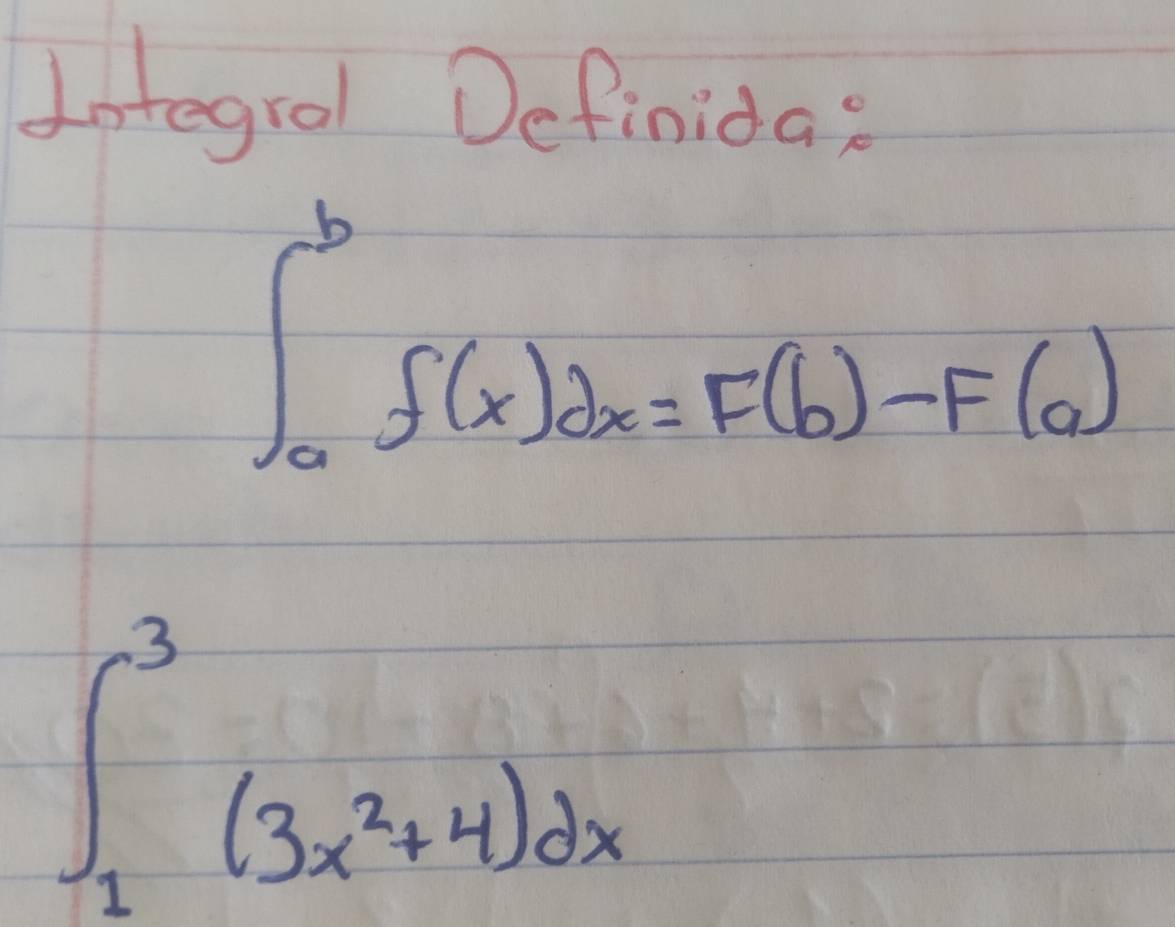 Integral Definida:
∫ₐᵇ f(x)dx = F(b) - F(a)
∫₁³ (3x² + 4)dx